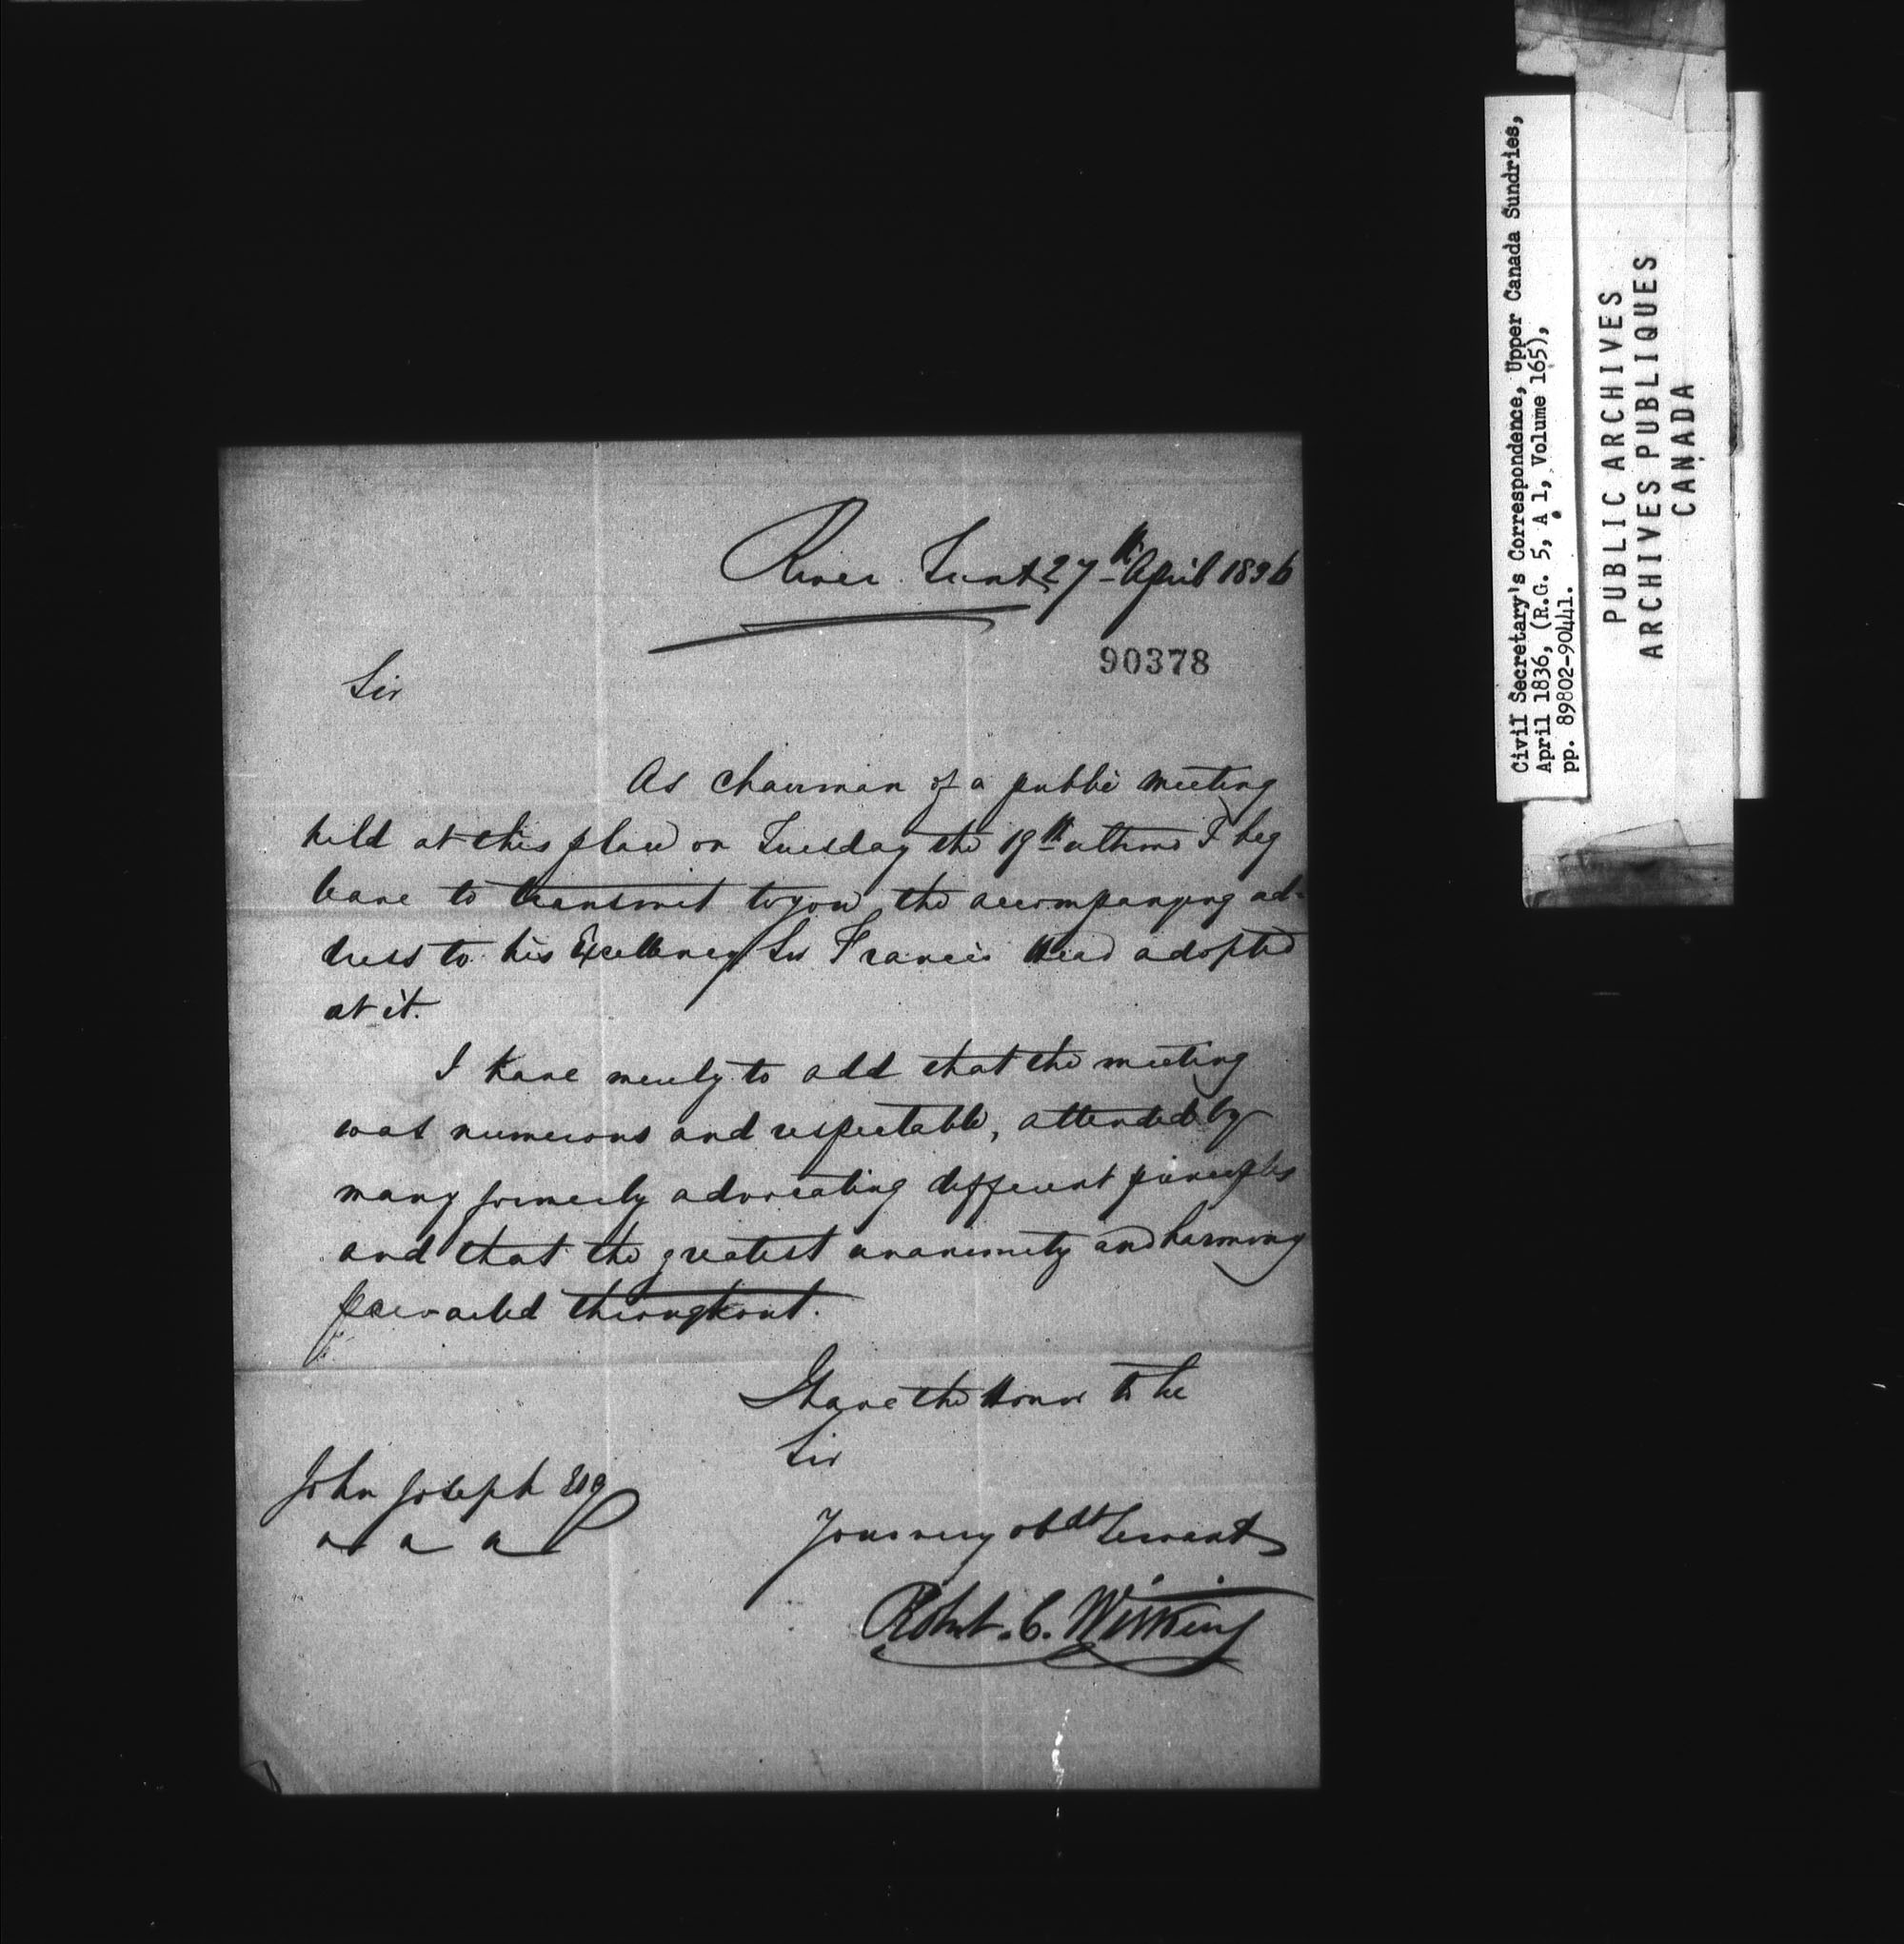 River Trent 27th April 1836
90378
Sir
As Chairman of a public meeting
held at this place on Tuesday the 19th ultimo I beg
leave to transmit to you the accompanying ad-
dress to his Excellency Sir Francis Head adopted
at it.
I have merely to add that the meeting
was numerous and respectable, attended by
many formerly advocating different principles
and that the greatest unanimity and harmony
prevailed throughout.
I have the Honor to be
Sir
Your very obdt Servant
Robt. C. Wilkins
John Joseph Esq
Civil Secretary's Correspondence, Upper Canada Sundries,
April 1836, (R.G. 5, A 1, Volume 165),
pp. 89802-90441.
PUBLIC ARCHIVES
ARCHIVES PUBLIQUES
CANADA